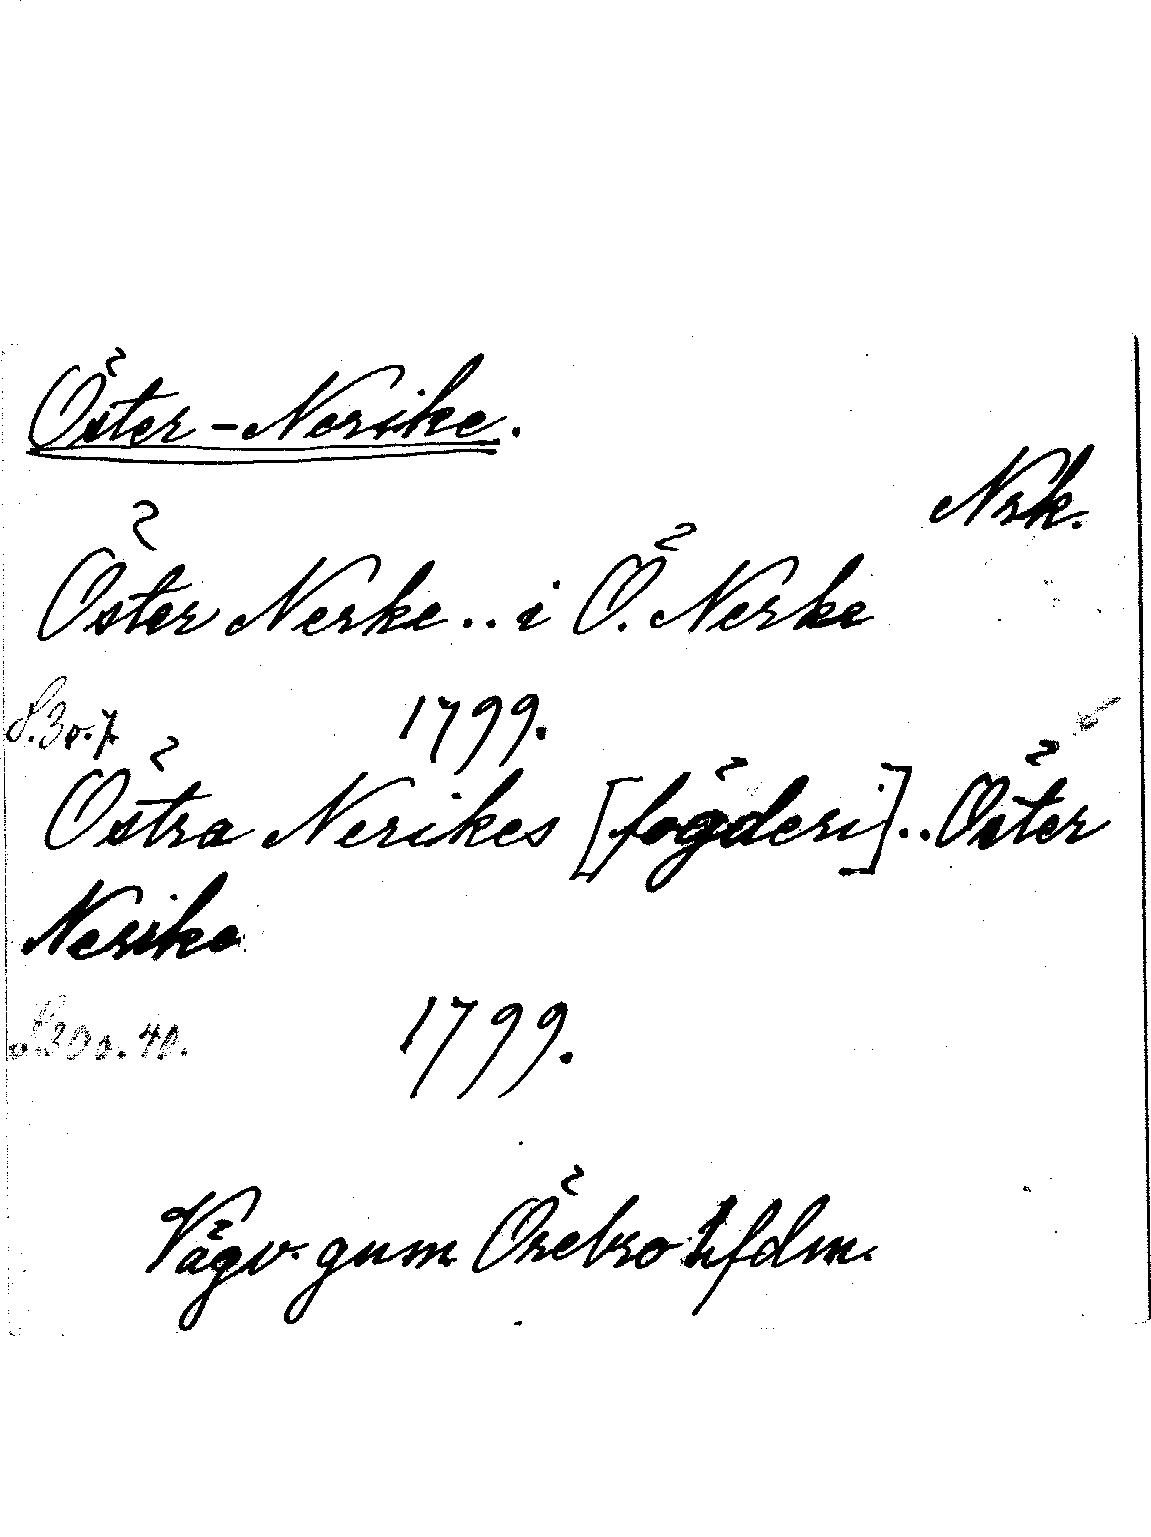 Öster-Nerike.
Nrk.
Öster Nerke.. i Ö. Nerke
S. 3 o. 7. 1799.
Östra Nerikes [fögderi].. Öster
Nerike
S. 30 o. 40. 1799.
Vägv. gnm Örebro hfdm.